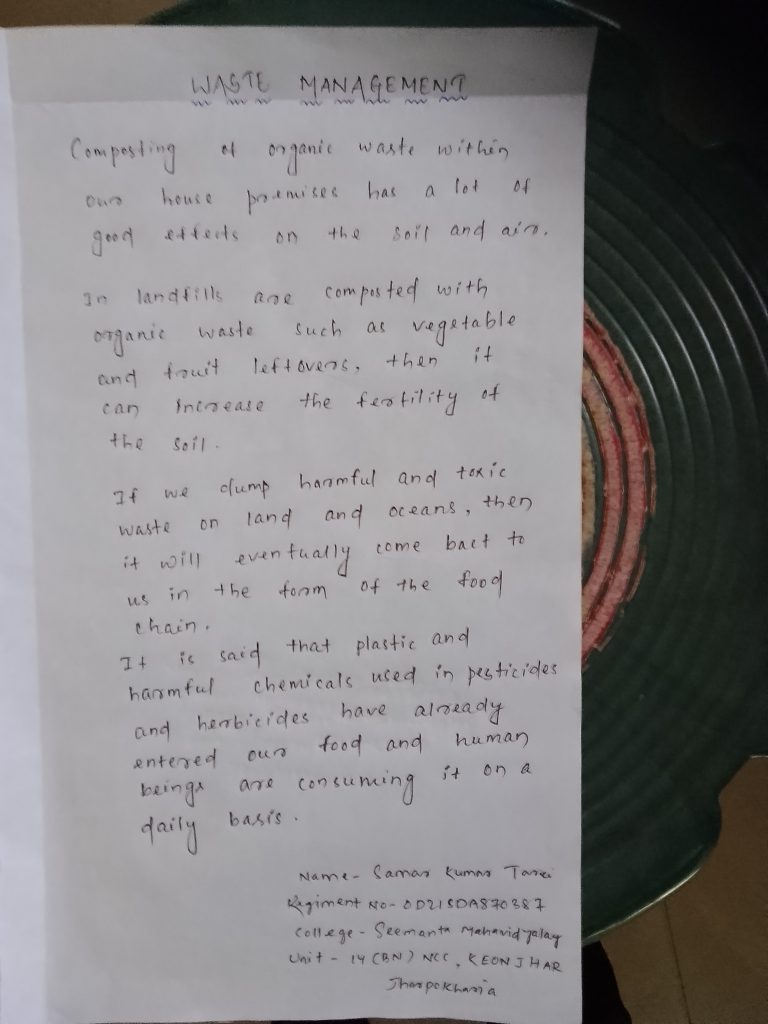 WASTE MANAGEMENT
Composting of organic waste within
our house premises has a lot of
good effects on the soil and air.
In landfills are composted with
organic waste such as vegetable
and fruit leftovers, then it
can increase the fertility of
the soil.
If we dump harmful and toxic
waste on land and oceans, then
it will eventually come bact to
us in the form of the food
chain.
It is said that plastic and
harmful chemicals used in pesticides
and herbicides have already
entered our food and human
beings are consuming it on a
daily basis.
Name- Samar Kumar Tarei
Regiment No- OD21SDA870387
College - Seemanta Mahavidyalay
Unit - 14 (BN) NCC, KEONJHAR
Jharpokharia